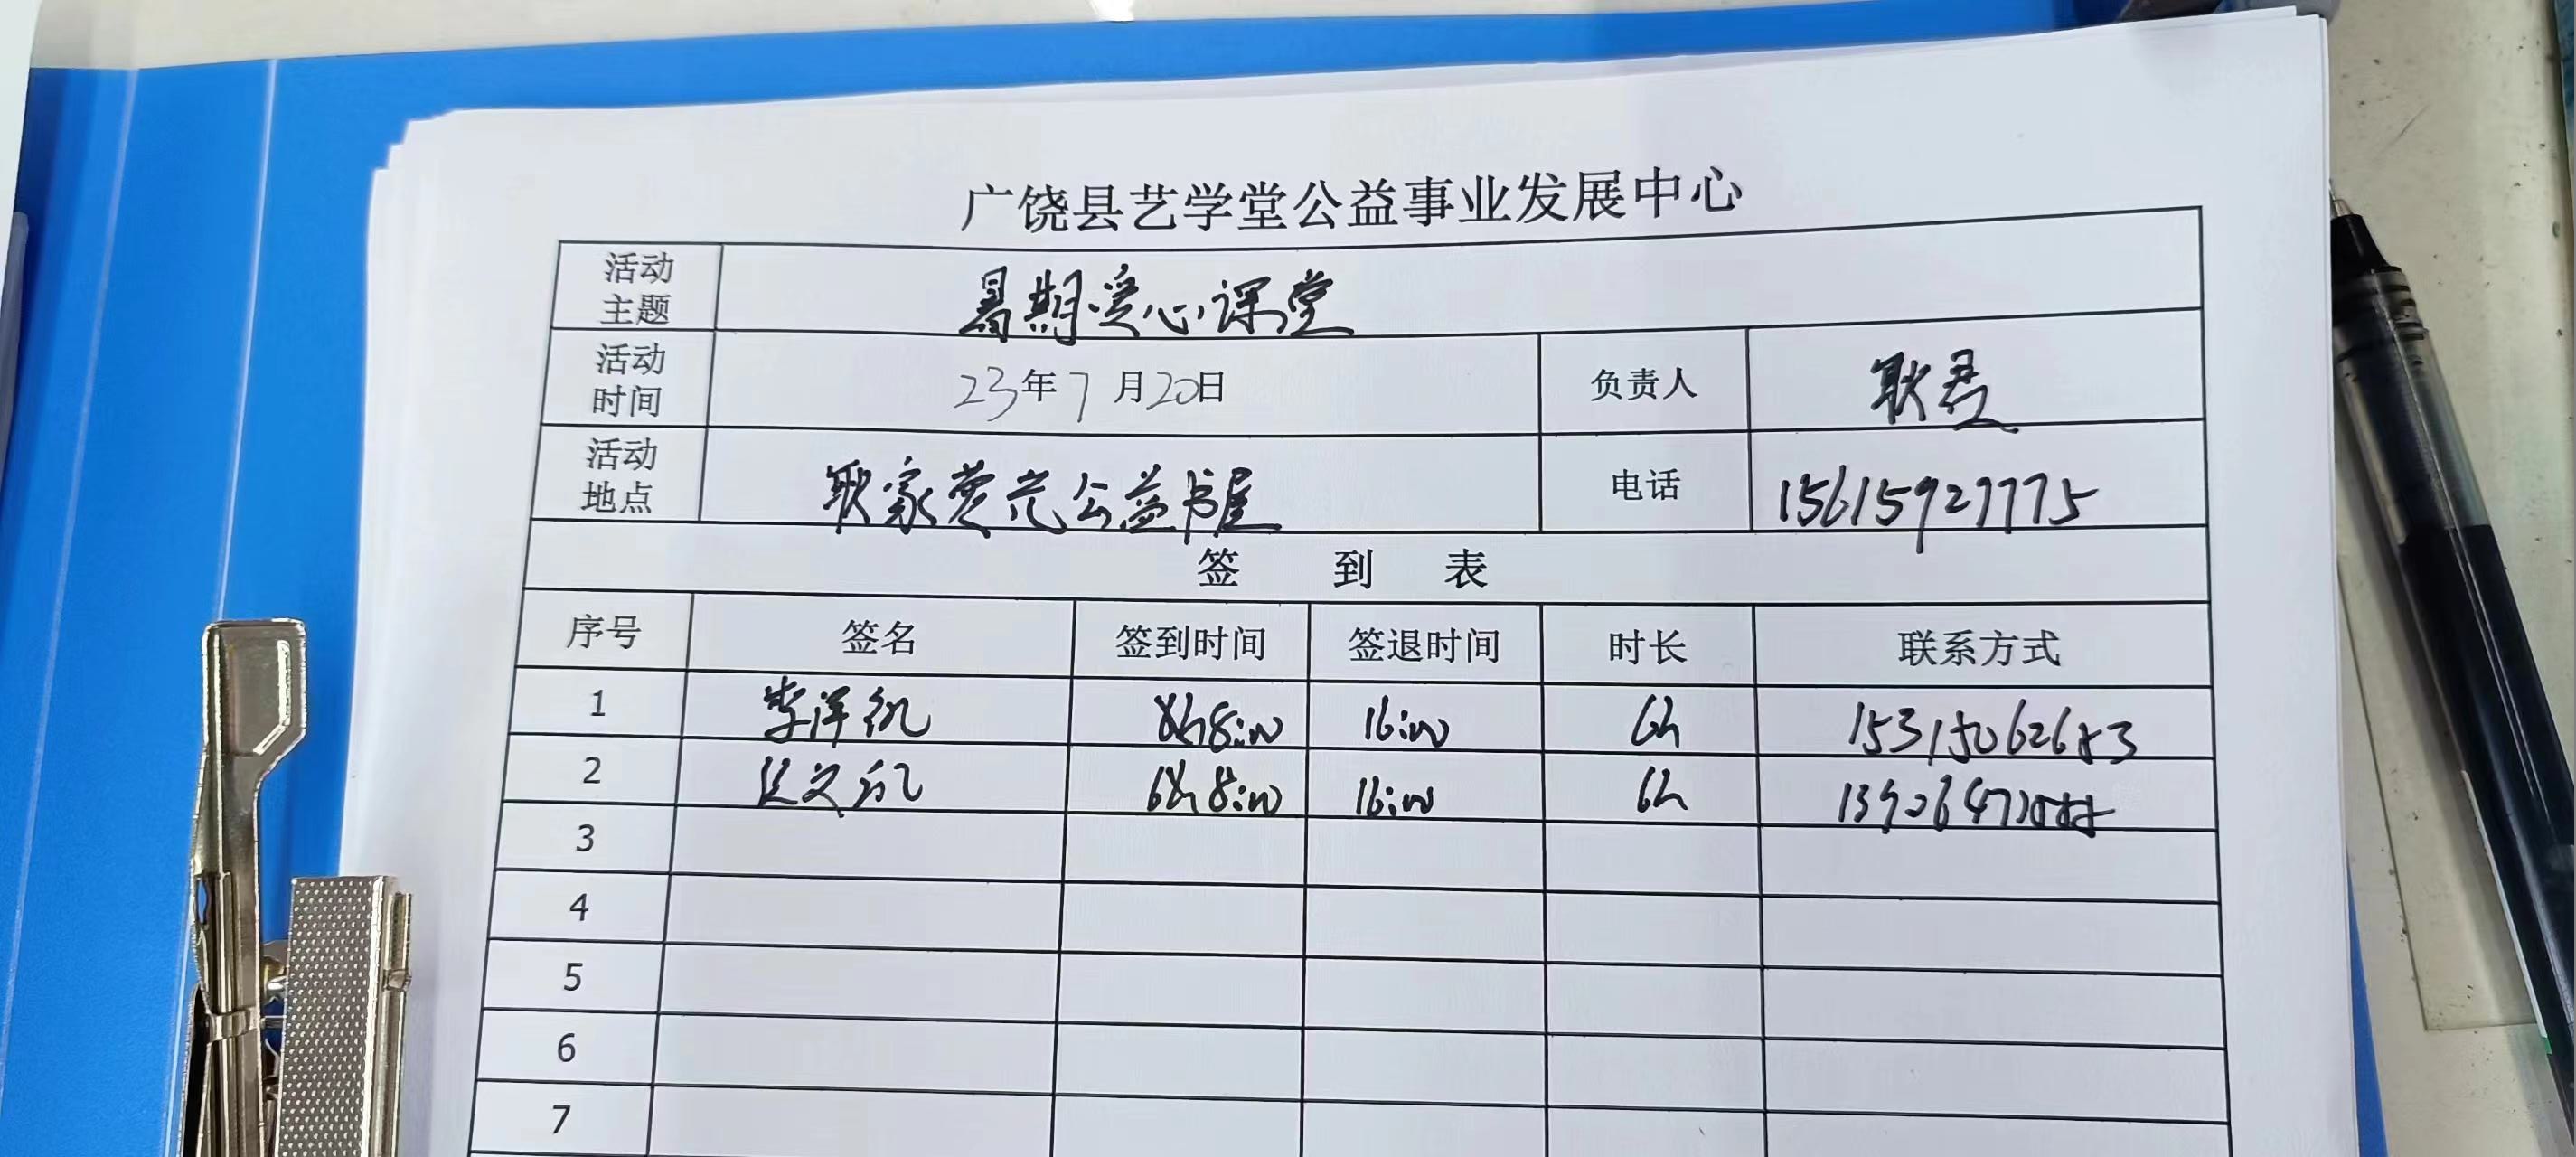 广饶县艺学堂公益事业发展中心
活动主题 暑期爱心课堂
活动时间 23年7月20日 负责人 耿君
活动地点 耿家荧光公益书屋 电话 15615927775
签 到 表
序号 签名 签到时间 签退时间 时长 联系方式
1 李洋帆 8:00 16:00 6h
2 8:00 16:00 6h
3
4
5
6
7